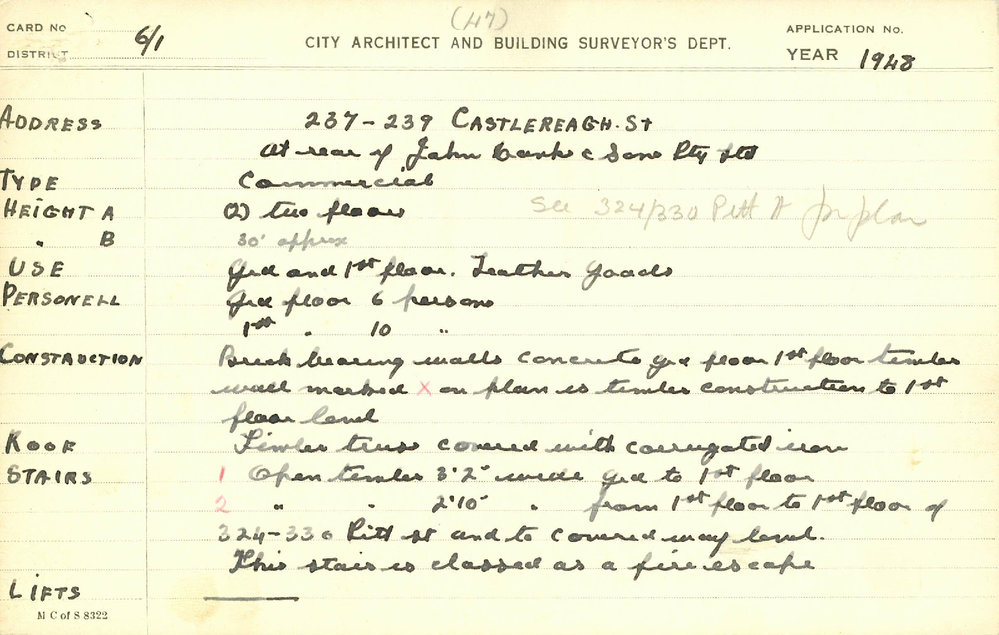 (47)
CARD No 6/1
DISTRICT
CITY ARCHITECT AND BUILDING SURVEYOR'S DEPT.
APPLICATION No.
YEAR 1948
ADDRESS 237-239 CASTLEREAGH. ST
At rear of John Danks & Sons Pty Ltd
TYPE Commercial
HEIGHT A (2) two floors
See 324/330 Pitt St for plan
" B 30' approx
USE Grd and 1st floor. Leather Goods
PERSONELL Grd floor 6 persons
1st " 10 "
CONSTRUCTION Brick bearing walls concrete grd floor 1st floor timber
wall marked X on plan is timber construction to 1st
floor level
ROOF Timber truss covered with corrugated iron
STAIRS 1 Open timber 3'2" wide grd to 1st floor
2 " " 2'10" " from 1st floor to 1st floor of
324-330 Pitt st and to covered way level.
This stair is classed as a fire escape
LIFTS
M C of S 8322